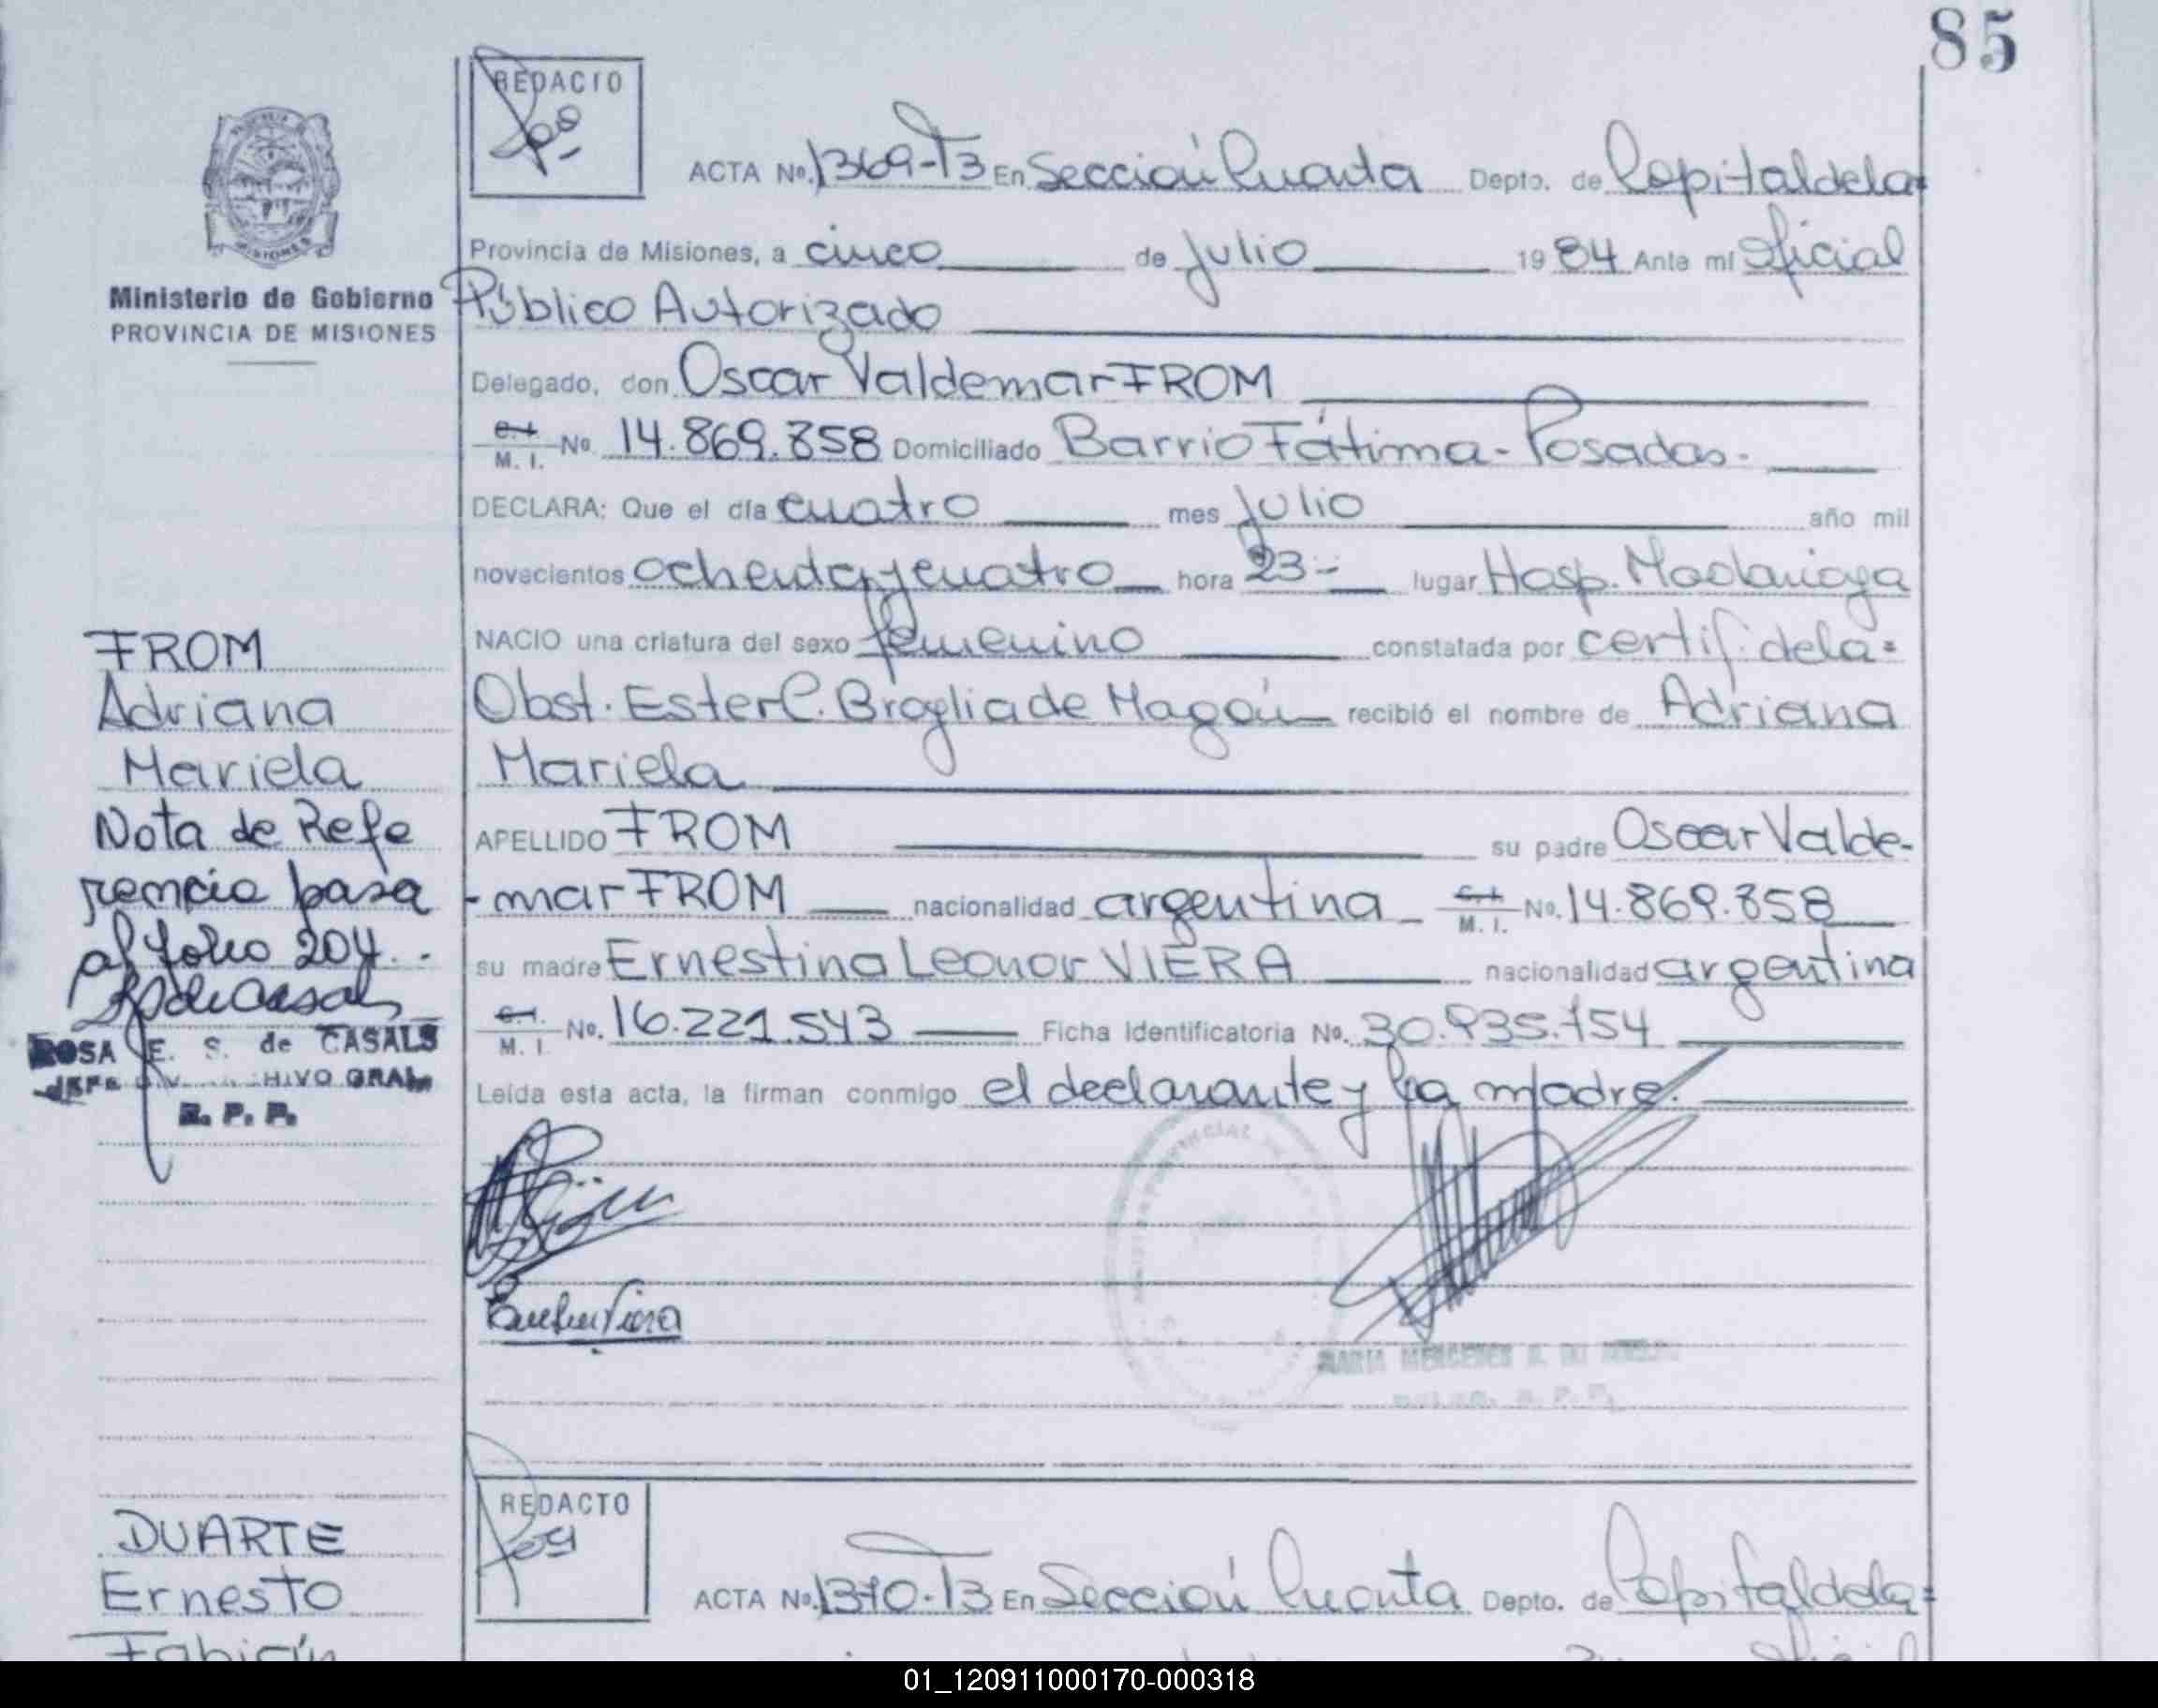 85
REDACTO
ACTA Nº. 1369-T3 En Sección Cuarta Depto. de Capital de la
Provincia de Misiones, a cinco de Julio 1984 Ante mi Oficial
Ministerio de Gobierno
PROVINCIA DE MISIONES
Público Autorizado
Delegado, don Oscar Valdemar FROM
C. I. M. I. No. 14.869.858 Domiciliado Barrio Fátima - Posadas.
DECLARA: Que el día cuatro mes Julio año mil
novecientos ochenta y cuatro hora 23 lugar Hosp. Madariaga
NACIO una criatura del sexo femenino constatada por certif. de la
Obst. Ester C. Broglia de Magán recibió el nombre de Adriana
Mariela
APELLIDO FROM su padre Oscar Valde-
-mar FROM nacionalidad argentina C. I. M. I. No. 14.869.858
su madre Ernestina Leonor VIERA nacionalidad argentina
C. I. M. I. No. 16.221.543 Ficha Identificatoria No. 30.935.154
Leída esta acta, la firman conmigo el declarante y la madre.
FROM
Adriana
Mariela
Nota de Refe
rencia pasa
al folio 204.
ROSA E. S. de CASALS
HIVO GRAL
R. P. P.
Viera
MARIA MERCEDES
REDACTO
ACTA No. 1370-T3 En Sección Cuarta Depto. de Capital de la
DUARTE
Ernesto
Fabián
01_120911000170-000318